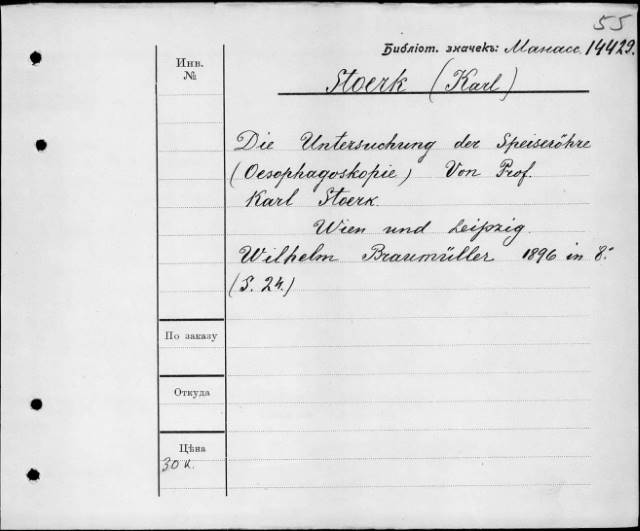 55
Библіот. значекъ: Манасс. 14429.
Инв.
№
Stoerk (Karl)
Die Untersuchung der Speiseröhre
(Oesophagoskopie) Von Prof.
Karl Stoerk.
Wien und Leipzig.
Wilhelm Braumüller 1896 in 8.°
(S. 24.)
По заказу
Откуда
Цѣна
30 к.